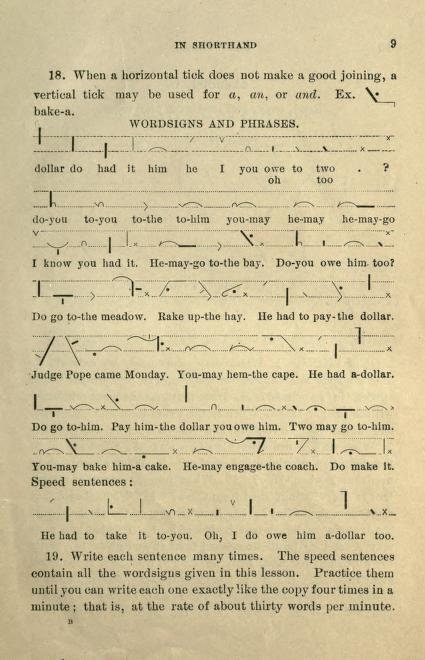 IN SHORTHAND 9
18. When a horizontal tick does not make a good joining, a
vertical tick may be used for a, an, or and. Ex.
bake-a.
WORDSIGNS AND PHRASES.
dollar do had it him he I you owe to two . ?
oh too
do-you to-you to-the to-him you-may he-may he-may-go
I know you had it. He-may-go to-the bay. Do-you owe him too?
Do go to-the meadow. Rake up-the hay. He had to pay-the dollar.
Judge Pope came Monday. You-may hem-the cape. He had a-dollar.
Do go to-him. Pay him-the dollar you owe him. Two may go to-him.
You-may bake him-a cake. He-may engage-the coach. Do make it.
Speed sentences:
He had to take it to-you. Oh, I do owe him a-dollar too.
19. Write each sentence many times. The speed sentences
contain all the wordsigns given in this lesson. Practice them
until you can write each one exactly like the copy four times in a
minute; that is, at the rate of about thirty words per minute.
B